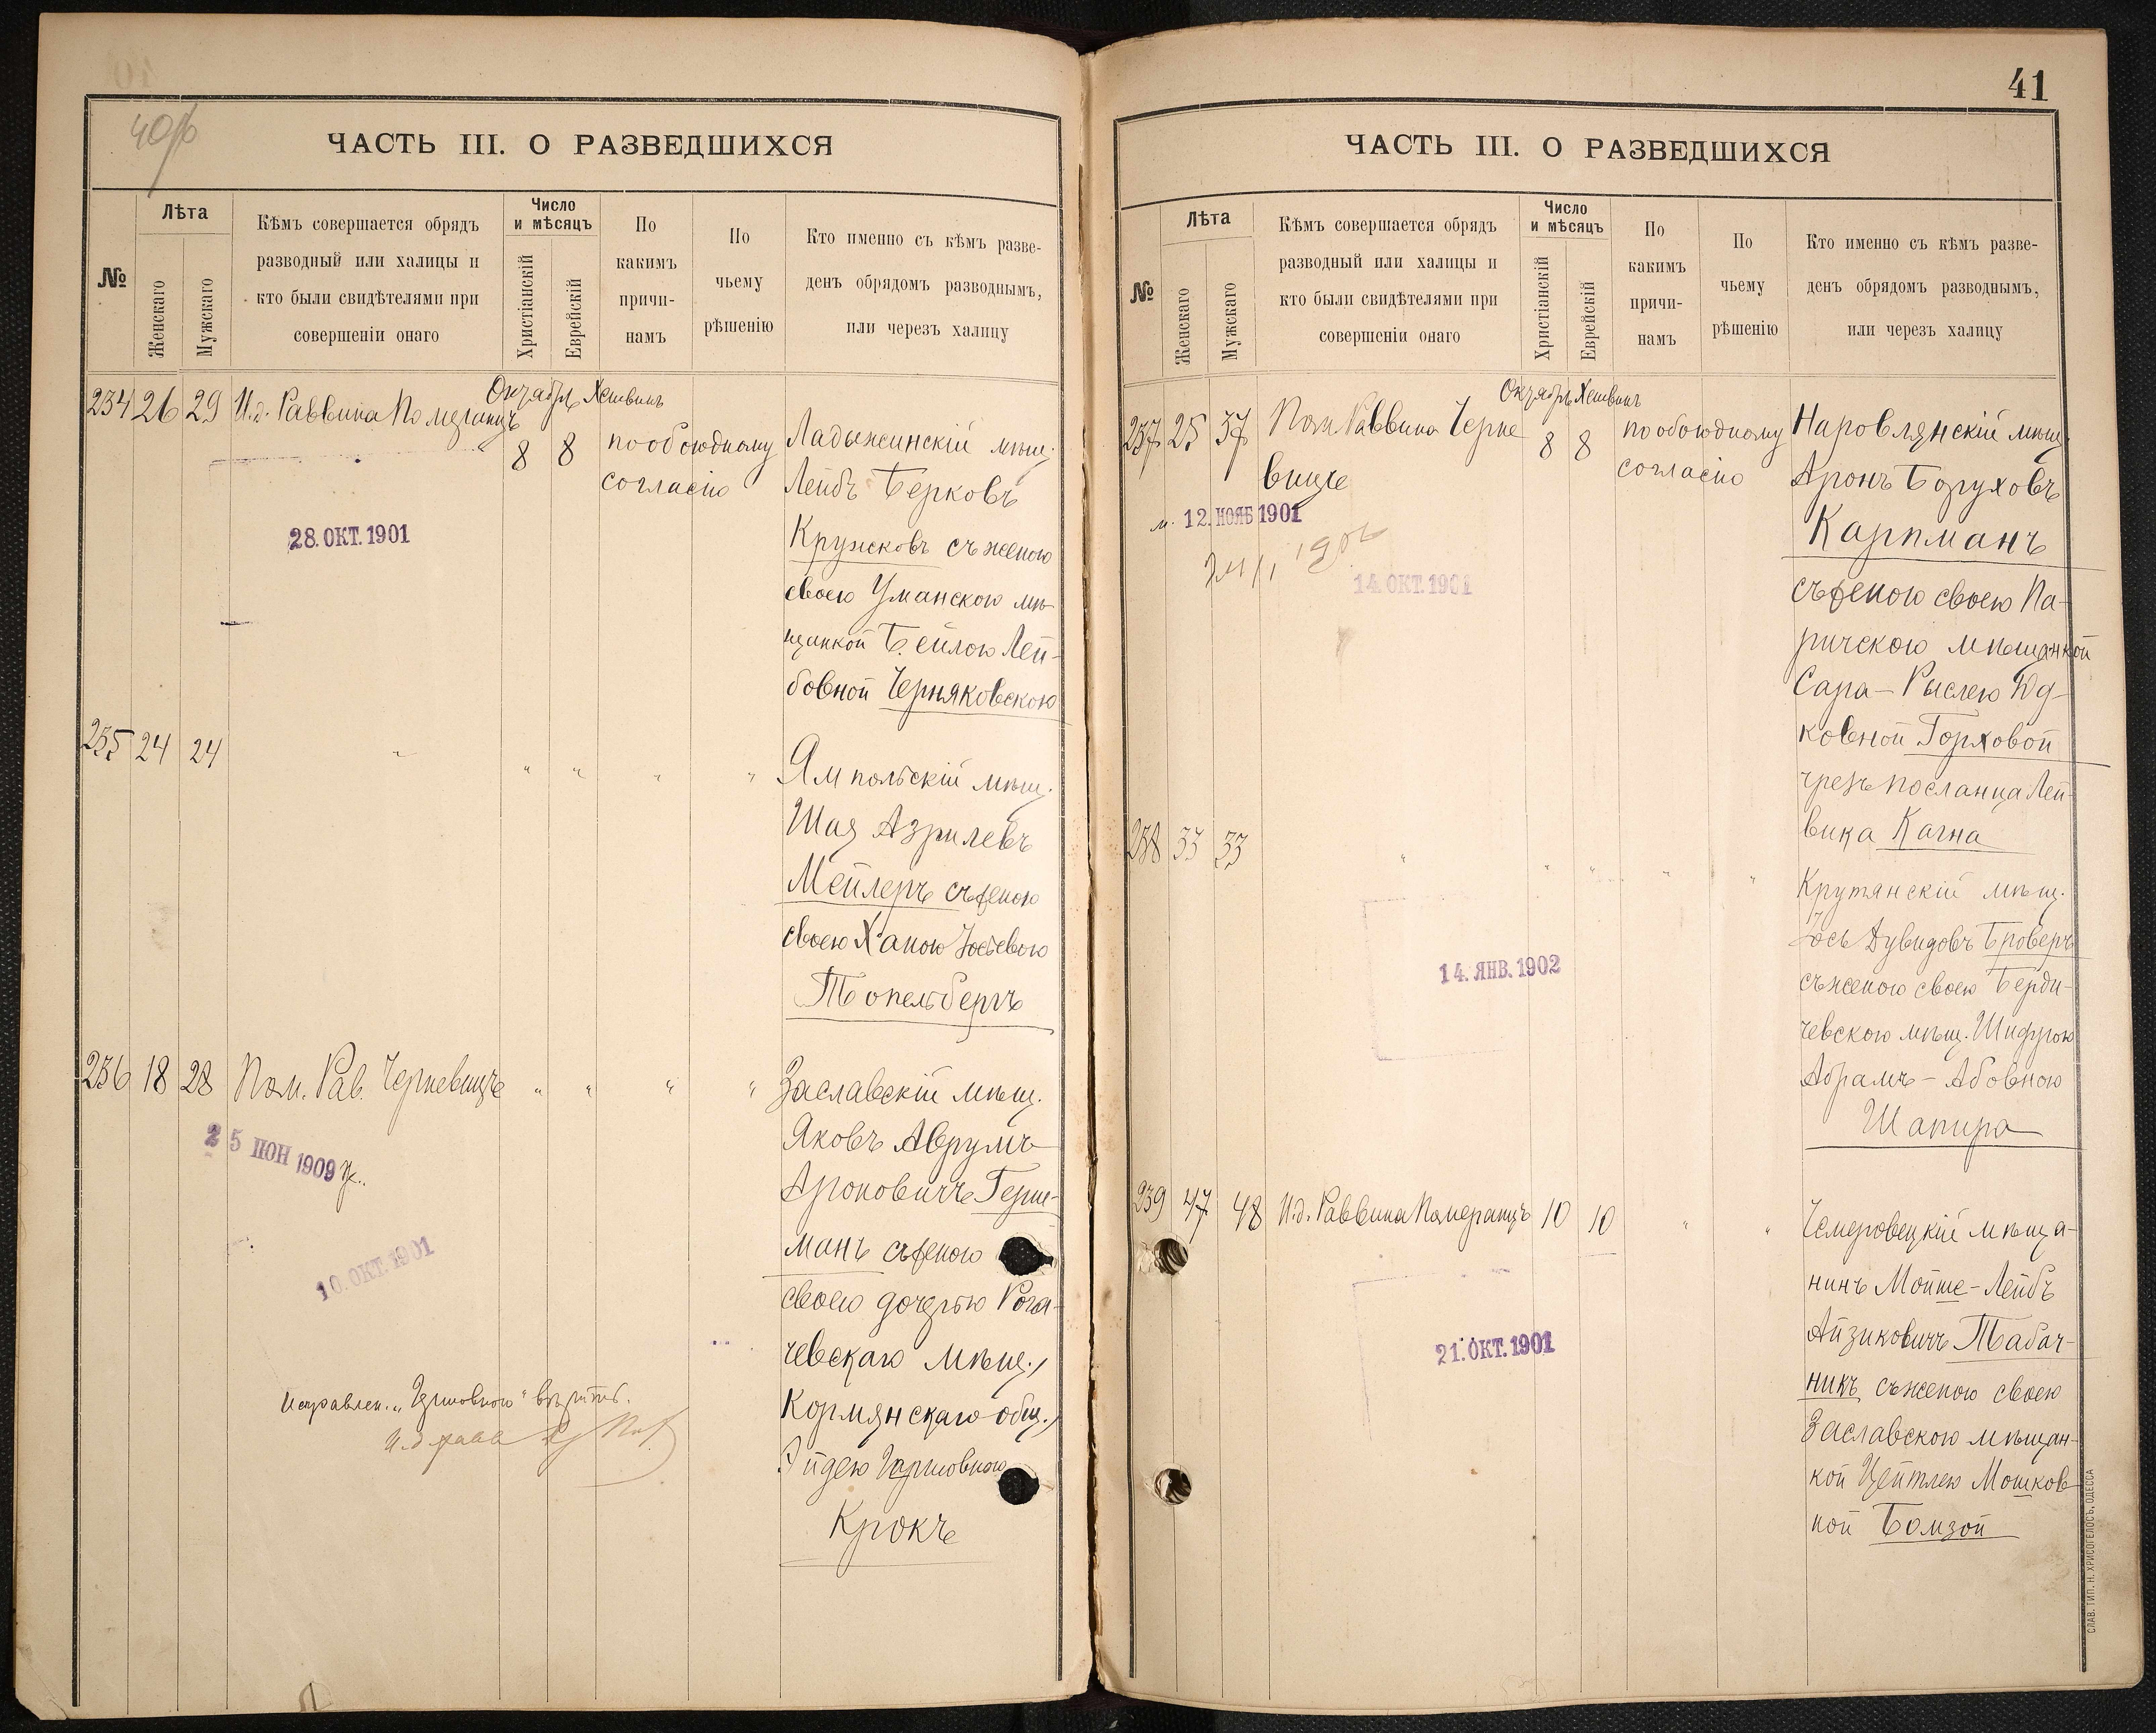 40/б
ЧАСТЬ III. О РАЗВЕДШИХСЯ
№
Лѣта
Женскаго
Мужскаго
Кѣмъ совершается обрядъ
разводный или халицы и
кто были свидѣтелями при
совершеніи онаго
Число
и мѣсяцъ
Христіанскій
Еврейскій
По
какимъ
причи-
намъ
По
чьему
рѣшенію
Кто именно съ кѣмъ разве-
денъ обрядомъ разводнымъ,
или черезъ халицу
234 26 29 И.д. Раввина Померанцъ
Октябрь Хешвинъ
8 8
по обоюдному
согласію
Ладыжинскій мѣщ.
Лейбъ Берковъ
Кружковъ съ женою
своею Уманскою мѣ-
щанкой Бейлою Лей-
бовной Черняковскою
28. ОКТ. 1901
235 24 24 " " " " "
Ямпольскій мѣщ.
Шая Азрилевъ
Мейлеръ съ женою
своею Ханою Іосьевою
Топельбергъ
236 18 28 Пом. Рав. Черневицъ " " " "
Заславскій мѣщ.
Яковъ Аврумъ
Ароновичъ Герш-
манъ съ женою
своею дочерью Рога-
чевскаго мѣщ.,
Кормянскаго общ.,
Эйдею Гершовною
Крокъ
25 ІЮН 1909
10. ОКТ. 1901
Исправлен. "Гершовною" вѣрить.
И.д. рав
41
ЧАСТЬ III. О РАЗВЕДШИХСЯ
№
Лѣта
Женскаго
Мужскаго
Кѣмъ совершается обрядъ
разводный или халицы и
кто были свидѣтелями при
совершеніи онаго
Число
и мѣсяцъ
Христіанскій
Еврейскій
По
какимъ
причи-
намъ
По
чьему
рѣшенію
Кто именно съ кѣмъ разве-
денъ обрядомъ разводнымъ,
или черезъ халицу
237 25 37 Пом Раввина Черне
вицъ
Октябрь Хешвинъ
8 8
по обоюдному
согласію
Наровлянскій мѣщ.
Аронъ Боруховъ
Карпманъ
съ женою своею Па-
ричскою мѣщанкой
Сара-Рыслею Юд-
ковной Горховой
чрезъ посланца Лей-
вика Кагна
12. НОЯБ 1901
14. ОКТ. 1901
238 33 33 " " " " "
Крутянскій мѣщ.
Іось Дувидовъ Броверъ
съ женою своею Берди-
чевскою мѣщ. Шифрою
Абрамъ-Абовною
Шапиро
14. ЯНВ. 1902
239 47 48 И.д. Раввина Померанцъ 10 10 " "
Чемеровецкій мѣща-
нинъ Мойше-Лейбъ
Айзиковичъ Табач-
никъ съ женою своею
Заславскою мѣщан-
кой Цейтлею Мошков-
ной Бомзой
21. ОКТ. 1901
СЛАВ. ТИП. Н. ХРИСОГЕЛОСЪ, ОДЕССА